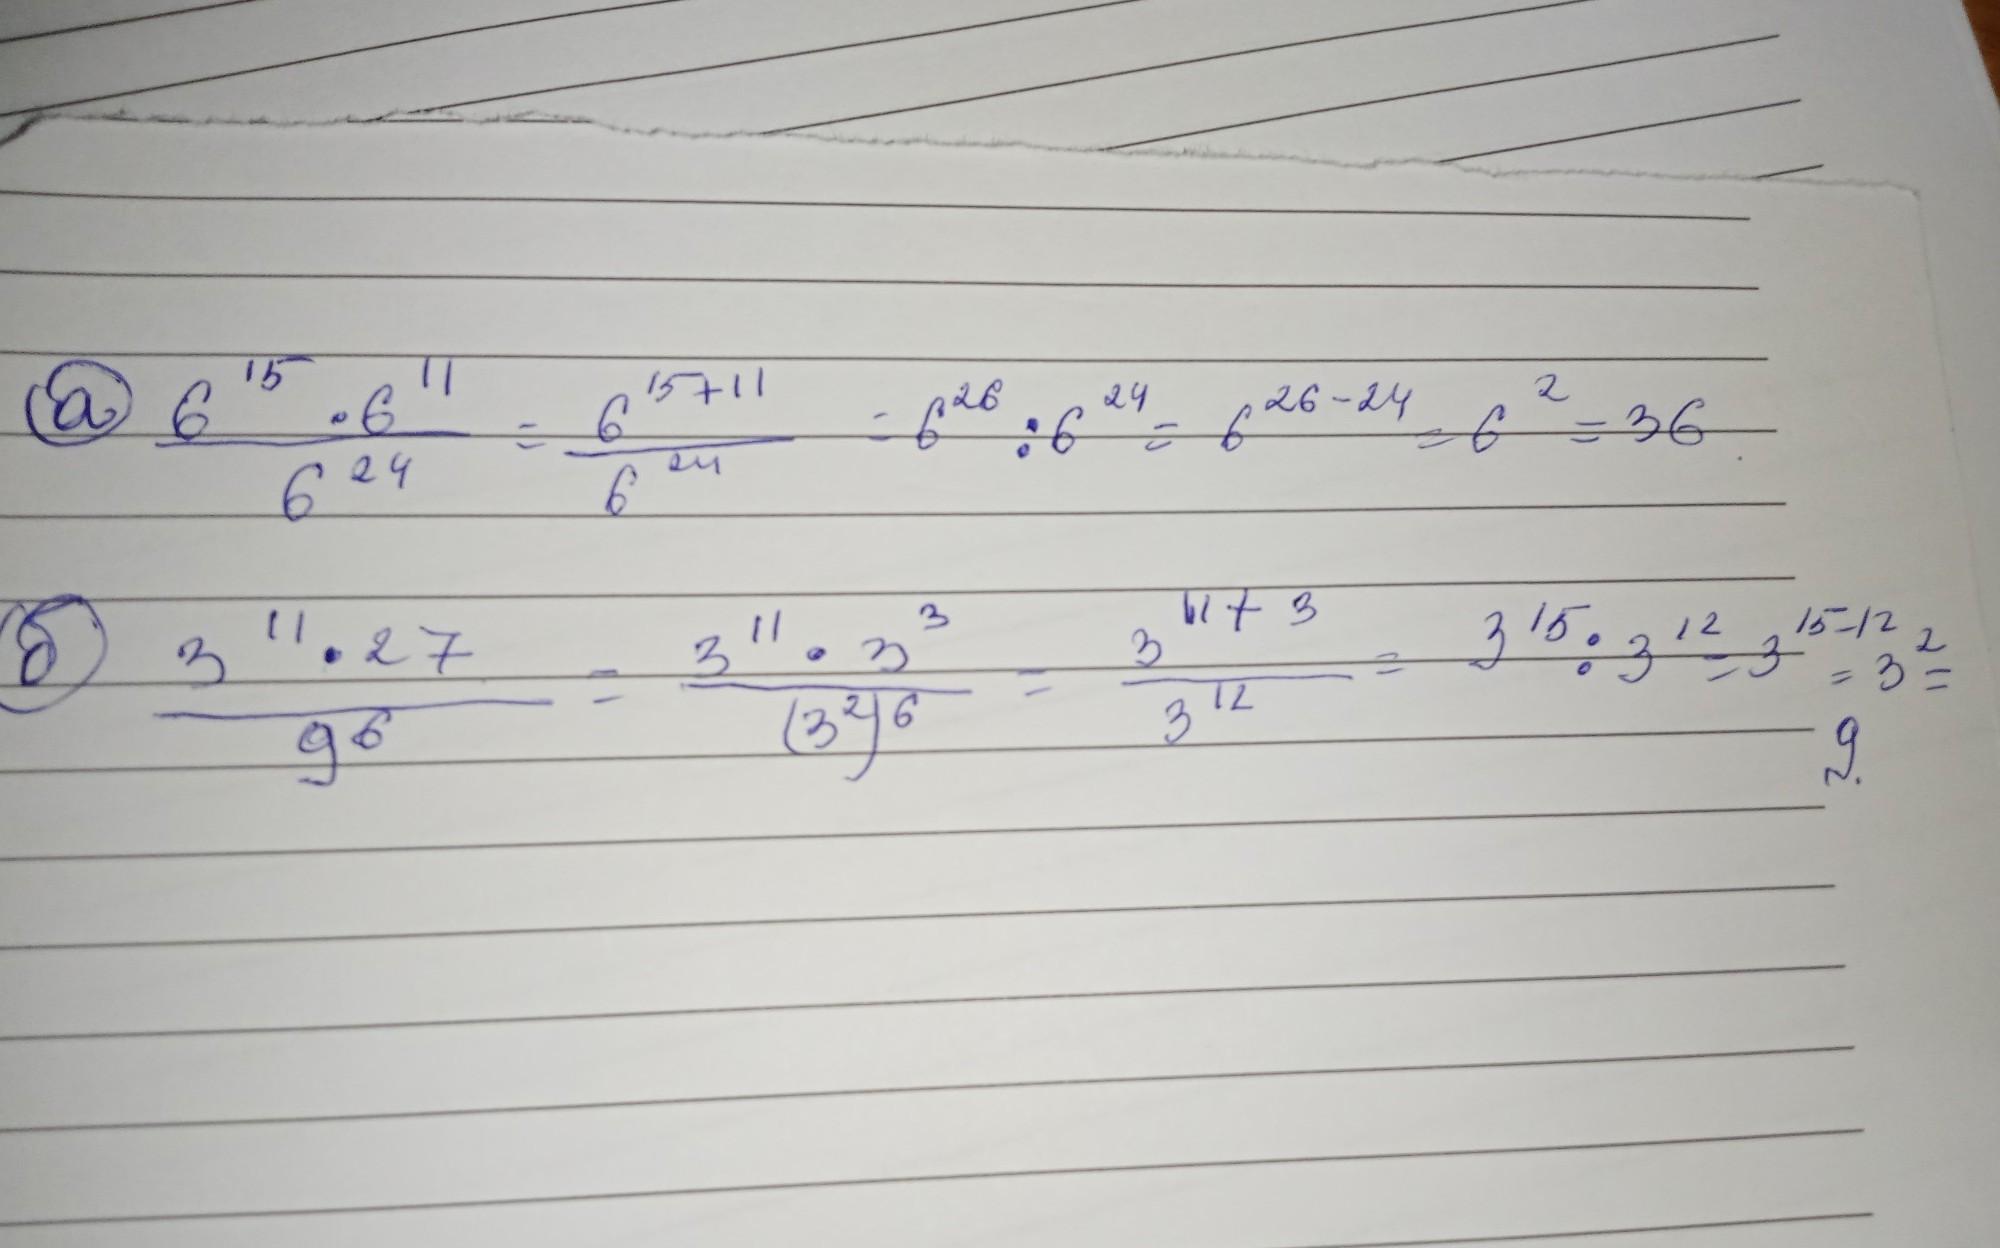 а) (6^15 · 6^11)/(6^24) = (6^(15+11))/(6^24) = 6^26 : 6^24 = 6^(26-24) = 6^2 = 36.
б) (3^11 · 27)/(9^6) = (3^11 · 3^3)/((3^2)^6) = (3^(11+3))/(3^12) = 3^15 : 3^12 = 3^(15-12) = 3^2 =
9.